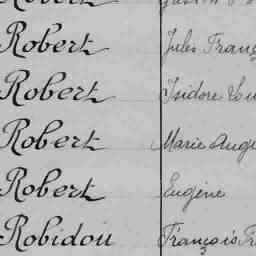 Robert Jules Franç
Robert Isidore
Robert Marie Aug
Robert Eugène
Robidou François